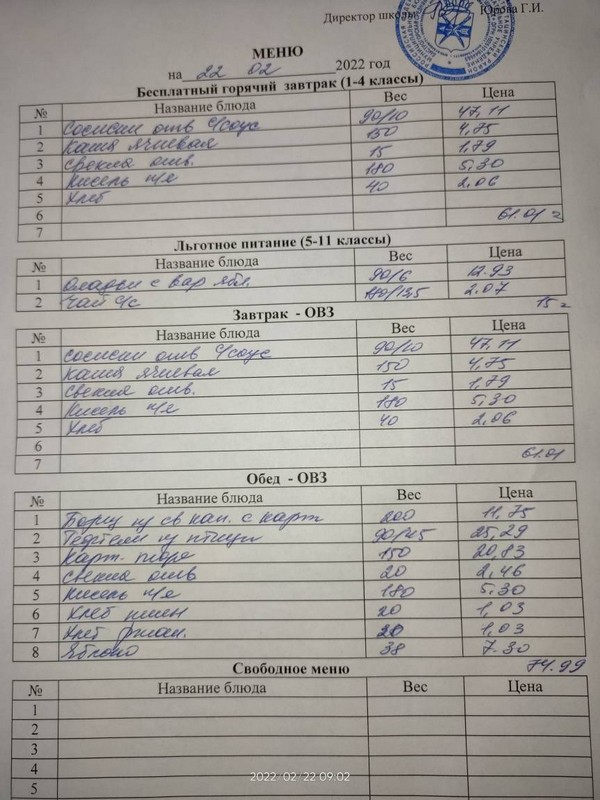 Директор школы Юрова Г.И.
МЕНЮ
на 22 02 2022 год
Бесплатный горячий завтрак (1-4 классы)
№ Название блюда Вес Цена
1 Сосиски отв с/соус 90/10 47,11
2 Каша ячневая 150 4,75
3 свекла отв. 15 1,79
4 Кисель п/я 180 5,30
5 Хлеб 40 2,06
6 61.01
7
Льготное питание (5-11 классы)
№ Название блюда Вес Цена
1 Оладьи с вар. ябл. 90/6 12.93
2 Чай с/с 180/13,5 2.07
15
Завтрак - ОВЗ
№ Название блюда Вес Цена
1 Сосиски отв с/соус 90/10 47,11
2 Каша ячневая 150 4,75
3 Свекла отв. 15 1,79
4 Кисель п/я 180 5,30
5 Хлеб 40 2,06
6
7 61.01
Обед - ОВЗ
№ Название блюда Вес Цена
1 Борщ из св кап. с карт 200 11,75
2 Тефтели из птицы 90/25 25,29
3 Карт. пюре 150 20,83
4 Свекла отв 20 2,46
5 Кисель п/я 180 5.30
6 Хлеб пшен 20 1,03
7 Хлеб ржан. 20 1,03
8 Яблоко 38 7.30
74.99
Свободное меню
№ Название блюда Вес Цена
1
2
3
4
5
2022 02 22 09:02